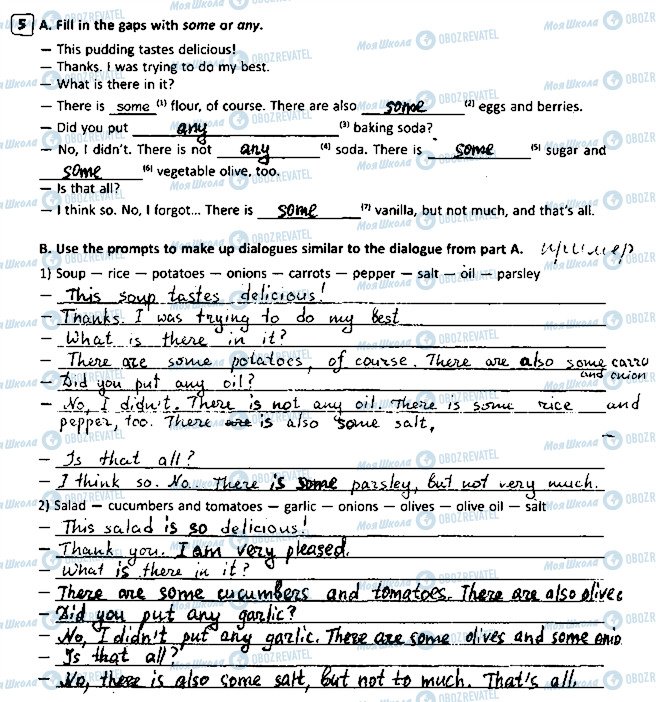 5 A. Fill in the gaps with some or any.
— This pudding tastes delicious!
— Thanks. I was trying to do my best.
— What is there in it?
— There is some (1) flour, of course. There are also some (2) eggs and berries.
— Did you put any (3) baking soda?
— No, I didn't. There is not any (4) soda. There is some (5) sugar and
some (6) vegetable olive, too.
— Is that all?
— I think so. No, I forgot... There is some (7) vanilla, but not much, and that's all.
B. Use the prompts to make up dialogues similar to the dialogue from part A. пример
1) Soup — rice — potatoes — onions — carrots — pepper — salt — oil — parsley
— This soup tastes delicious!
— Thanks. I was trying to do my best
— What is there in it?
— There are some potatoes, of course. There are also some carro
and onion
— Did you put any oil?
— No, I didn't. There is not any oil. There is some rice and
pepper, too. There are is also some salt,
— Is that all?
— I think so. No.. There is some parsley, but not very much.
2) Salad — cucumbers and tomatoes — garlic — onions — olives — olive oil — salt
— This salad is so delicious!
— Thank you. I am very pleased.
— What is there in it?
— There are some cucumbers and tomatoes. There are also olives
— Did you put any garlic?
— No, I didn't put any garlic. There are some olives and some onio
— Is that all?
— No, there is also some salt, but not to much. That's all.